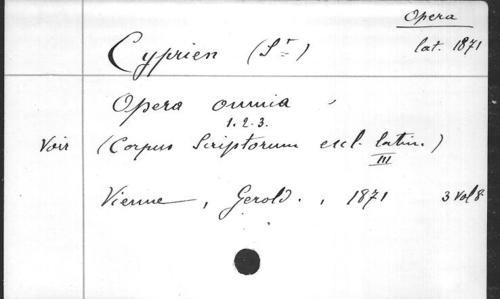 Opera
lat. 1871
Cyprien (St)
Opera omnia
1. 2. 3.
Voir (Corpus Scriptorum eccl. latin.)
III
Vienne, Gerold., 1871 3 vol 8